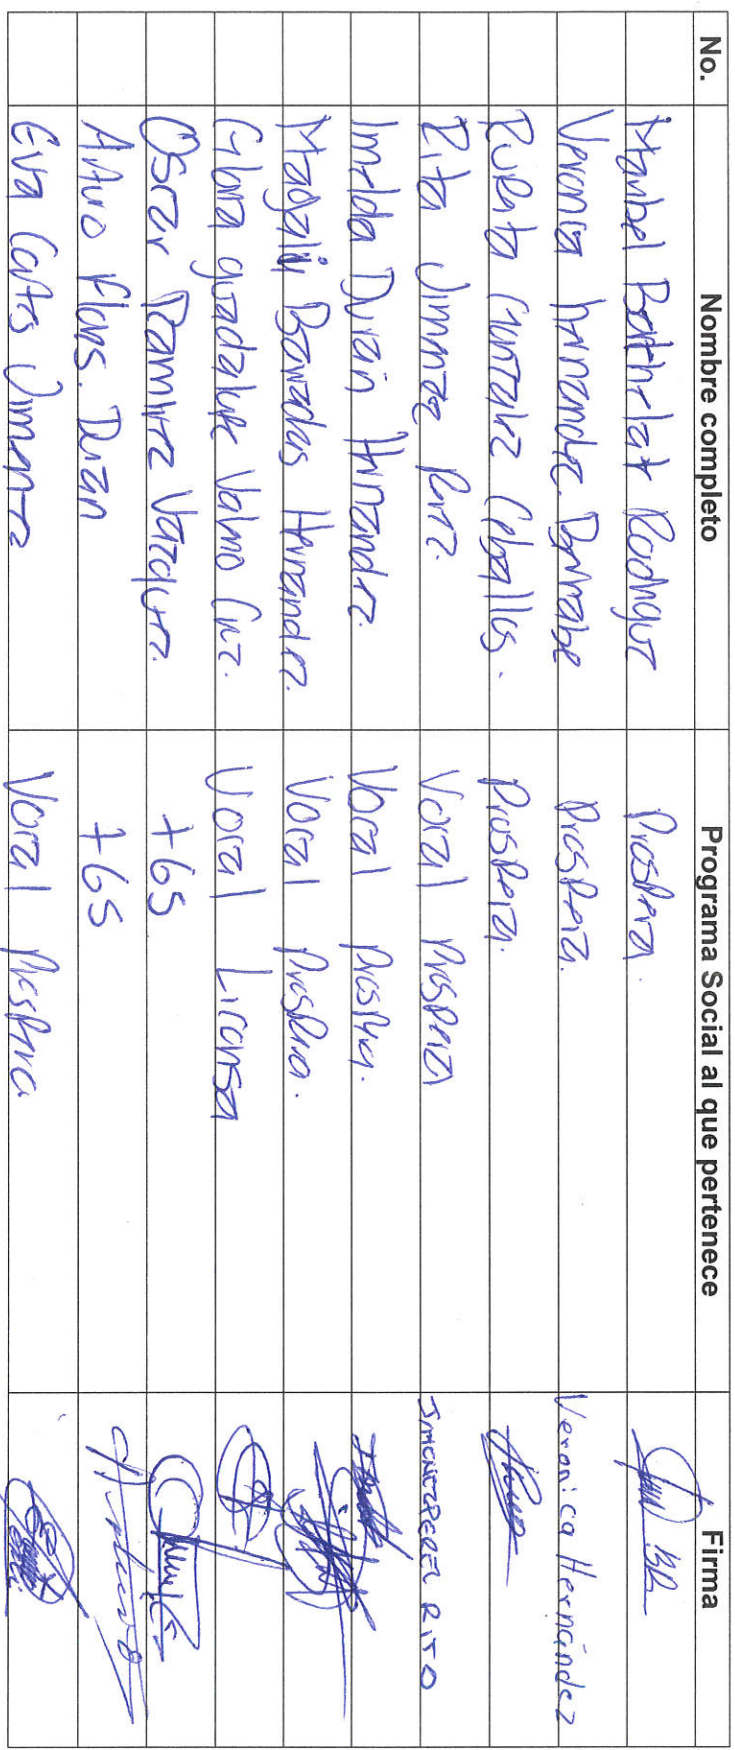 No. Nombre completo Programa Social al que pertenece Firma
Maribel Rodriguez Prospera.
Veronica hernandez Bernabe Prospera. Veronica Hernández
Gonzalez Ceballos. Prospera.
Rita Jimenez Perez. Vocal Prospera
Imelda Durán Hernandez. Vocal Prospera.
Magali Hernandez. Vocal Prospera.
guadalupe Cruz. Vocal Liconsa
Oscar Ramirez Vazquez. +65
Arturo Flores. Duran +65 Arturo
Eva Cortes Jimenez Vocal Prospera